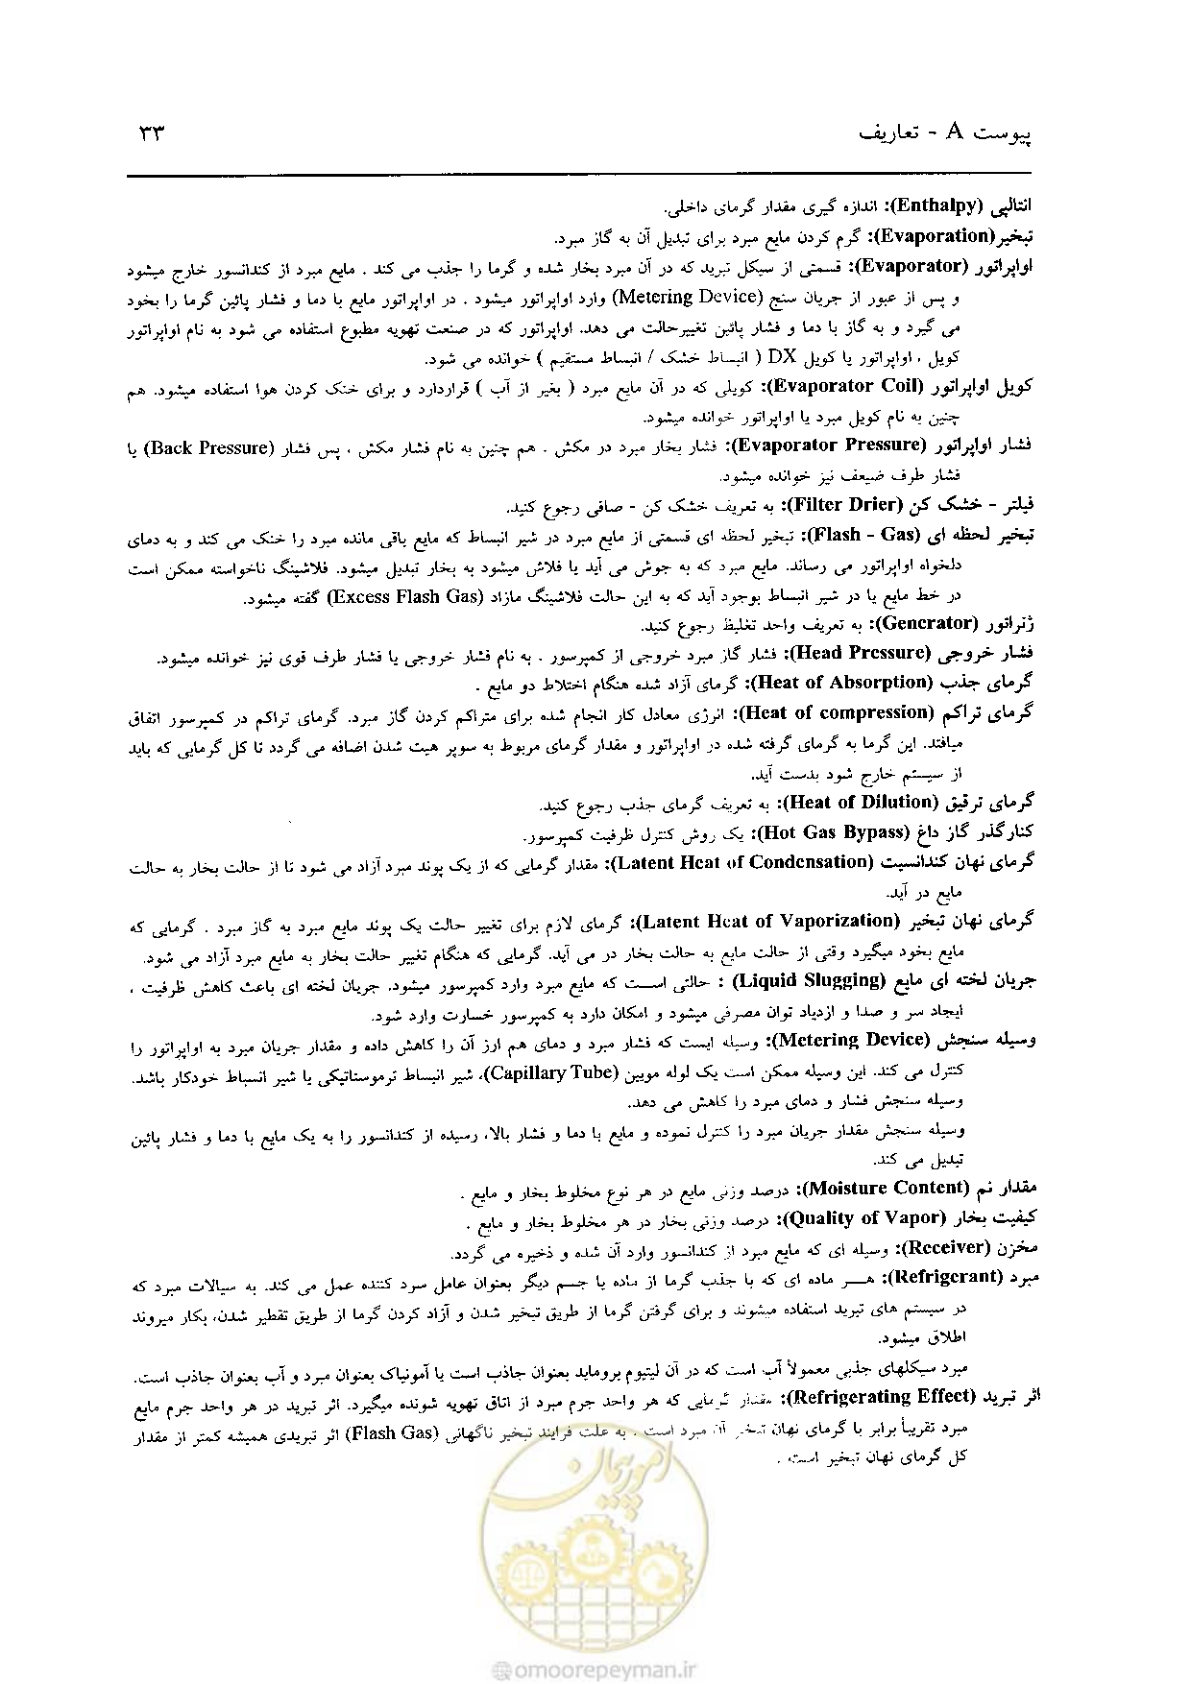 پیوست A - تعاریف ۳۳
انتالپی (Enthalpy): اندازه گیری مقدار گرمای داخلی.
تبخیر(Evaporation): گرم کردن مایع مبرد برای تبدیل آن به گاز مبرد.
اواپراتور (Evaporator): قسمتی از سیکل تبرید که در آن مبرد بخار شده و گرما را جذب می کند . مایع مبرد از کندانسور خارج میشود
و پس از عبور از جریان سنج (Metering Device) وارد اواپراتور میشود . در اواپراتور مایع با دما و فشار پائین گرما را بخود
می گیرد و به گاز با دما و فشار پائین تغییرحالت می دهد. اواپراتور که در صنعت تهویه مطبوع استفاده می شود به نام اواپراتور
کویل ، اواپراتور یا کویل DX ( انبساط خشک / انبساط مستقیم ) خوانده می شود.
کویل اواپراتور (Evaporator Coil): کویلی که در آن مایع مبرد ( بغیر از آب ) قراردارد و برای خنک کردن هوا استفاده میشود. هم
چنین به نام کویل مبرد یا اواپراتور خوانده میشود.
فشار اواپراتور (Evaporator Pressure): فشار بخار مبرد در مکش . هم چنین به نام فشار مکش ، پس فشار (Back Pressure) یا
فشار طرف ضیعف نیز خوانده میشود.
فیلتر - خشک کن (Filter Drier): به تعریف خشک کن - صافی رجوع کنید.
تبخیر لحظه ای (Flash - Gas): تبخیر لحظه ای قسمتی از مایع مبرد در شیر انبساط که مایع باقی مانده مبرد را خنک می کند و به دمای
دلخواه اواپراتور می رساند. مایع مبرد که به جوش می آید یا فلاش میشود به بخار تبدیل میشود. فلاشینگ ناخواسته ممکن است
در خط مایع یا در شیر انبساط بوجود آید که به این حالت فلاشینگ مازاد (Excess Flash Gas) گفته میشود.
ژنراتور (Generator): به تعریف واحد تغلیظ رجوع کنید.
فشار خروجی (Head Pressure): فشار گاز مبرد خروجی از کمپرسور . به نام فشار خروجی یا فشار طرف قوی نیز خوانده میشود.
گرمای جذب (Heat of Absorption): گرمای آزاد شده هنگام اختلاط دو مایع .
گرمای تراکم (Heat of compression): انرژی معادل کار انجام شده برای متراکم کردن گاز مبرد. گرمای تراکم در کمپرسور اتفاق
میافتد. این گرما به گرمای گرفته شده در اواپراتور و مقدار گرمای مربوط به سوپر هیت شدن اضافه می گردد تا کل گرمایی که باید
از سیستم خارج شود بدست آید.
گرمای ترقیق (Heat of Dilution): به تعریف گرمای جذب رجوع کنید.
کنارگذر گاز داغ (Hot Gas Bypass): یک روش کنترل ظرفیت کمپرسور.
گرمای نهان کندانسیت (Latent Heat of Condensation): مقدار گرمایی که از یک پوند مبرد آزاد می شود تا از حالت بخار به حالت
مایع در آید.
گرمای نهان تبخیر (Latent Heat of Vaporization): گرمای لازم برای تغییر حالت یک پوند مایع مبرد به گاز مبرد . گرمایی که
مایع بخود میگیرد وقتی از حالت مایع به حالت بخار در می آید. گرمایی که هنگام تغییر حالت بخار به مایع مبرد آزاد می شود.
جریان لخته ای مایع (Liquid Slugging) : حالتی است که مایع مبرد وارد کمپرسور میشود. جریان لخته ای باعث کاهش ظرفیت ،
ایجاد سر و صدا و ازدیاد توان مصرفی میشود و امکان دارد به کمپرسور خسارت وارد شود.
وسیله سنجش (Metering Device): وسیله ایست که فشار مبرد و دمای هم ارز آن را کاهش داده و مقدار جریان مبرد به اواپراتور را
کنترل می کند. این وسیله ممکن است یک لوله مویین (Capillary Tube)، شیر انبساط ترموستاتیکی یا شیر انبساط خودکار باشد.
وسیله سنجش فشار و دمای مبرد را کاهش می دهد.
وسیله سنجش مقدار جریان مبرد را کنترل نموده و مایع با دما و فشار بالا، رسیده از کندانسور را به یک مایع با دما و فشار پائین
تبدیل می کند.
مقدار نم (Moisture Content): درصد وزنی مایع در هر نوع مخلوط بخار و مایع .
کیفیت بخار (Quality of Vapor): درصد وزنی بخار در هر مخلوط بخار و مایع .
مخزن (Receiver): وسیله ای که مایع مبرد از کندانسور وارد آن شده و ذخیره می گردد.
مبرد (Refrigerant): هر ماده ای که با جذب گرما از ماده یا جسم دیگر بعنوان عامل سرد کننده عمل می کند. به سیالات مبرد که
در سیستم های تبرید استفاده میشوند و برای گرفتن گرما از طریق تبخیر شدن و آزاد کردن گرما از طریق تقطیر شدن، بکار میروند
اطلاق میشود.
مبرد سیکلهای جذبی معمولاً آب است که در آن لیتیوم بروماید بعنوان جاذب است یا آمونیاک بعنوان مبرد و آب بعنوان جاذب است.
اثر تبرید (Refrigerating Effect): مقدار گرمایی که هر واحد جرم مبرد از اتاق تهویه شونده میگیرد. اثر تبرید در هر واحد جرم مایع
مبرد تقریباً برابر با گرمای نهان تبخیر آن مبرد است . به علت فرایند تبخیر ناگهانی (Flash Gas) اثر تبریدی همیشه کمتر از مقدار
کل گرمای نهان تبخیر است .
امور پیمان
@omoorepeyman.ir